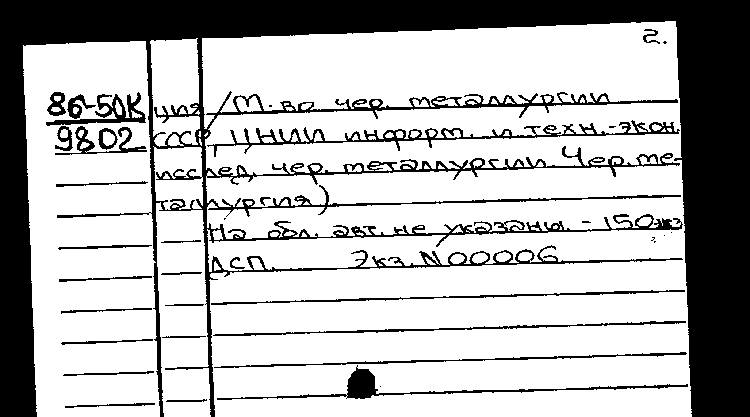 2.
86-50К ция / М-во чер. металлургии
9802 СССР, ЦНИИ информ. и техн.-экон.
исслед. чер. металлургии. Чер. ме-
таллургия).
На обл. авт. не указаны. - 150 экз
ДСП. Экз. N 00006